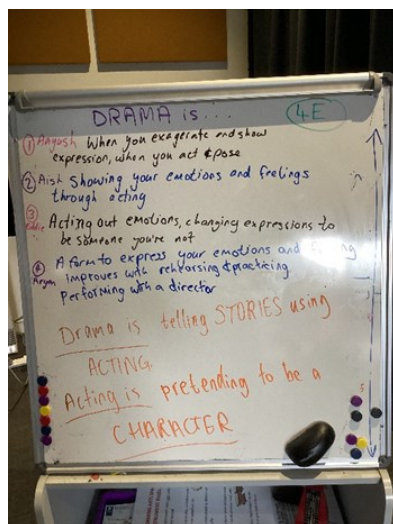 DRAMA is...
4E
① Aayush When you exagerate and show
expression, when you act & pose
② Aish Showing your emotions and feelings
through acting
③ Acting out emotions, changing expressions to
be someone you're not
④ A form to express your emotions and
Aryan improves with rehearsing & practicing.
Performing with a director
Drama is telling STORIES using
ACTING.
Acting is pretending to be a
CHARACTER